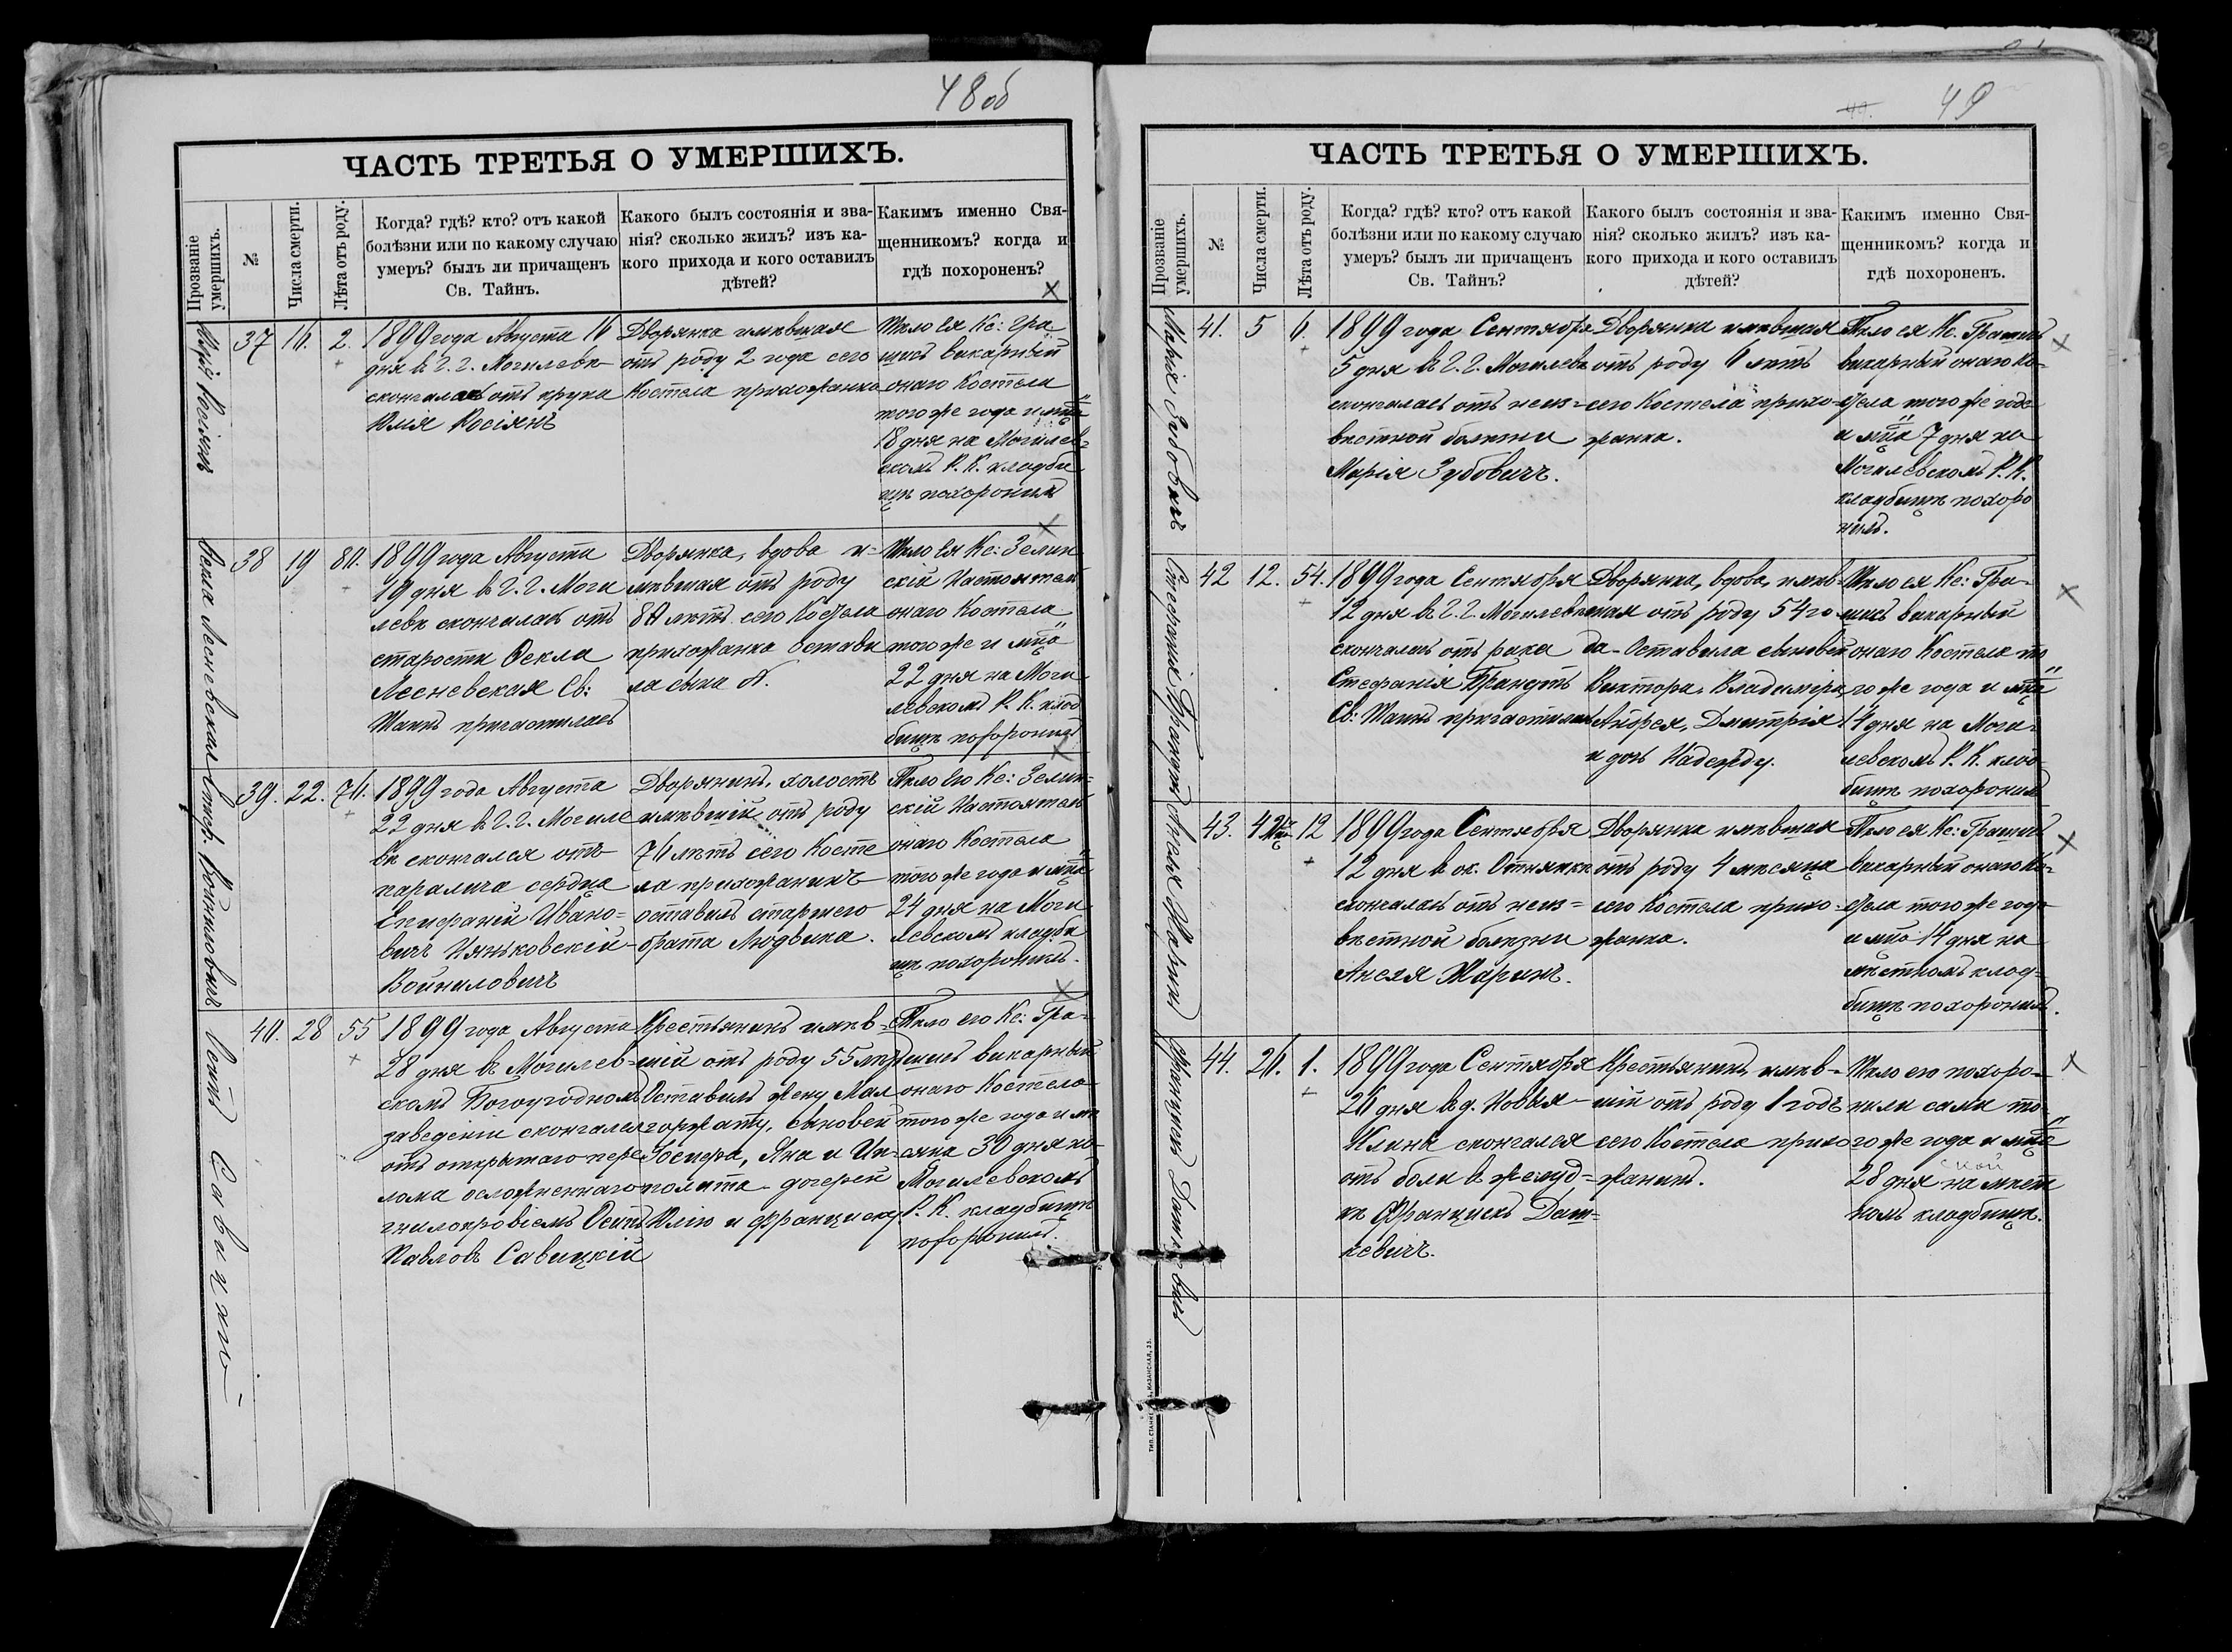 48об
ЧАСТЬ ТРЕТЬЯ О УМЕРШИХЪ.
Прозваніе умершихъ.
№
Числа смерти.
Лѣта отъ роду.
Когда? гдѣ? кто? отъ какой
болѣзни или по какому случаю
умеръ? былъ ли причащенъ
Св. Тайнъ.
Какого былъ состоянія и зва-
нія? сколько жилъ? изъ ка-
кого прихода и кого оставилъ
дѣтей?
Какимъ именно Свя-
щенникомъ? когда и
гдѣ похороненъ?
Юлія Косіянъ
37
16.
2.
1899 года Августа 16
дня въ г. г. Могилевѣ
скончалась отъ крупа
Юлія Косіянъ
Дворянка имѣвшая
отъ роду 2 года сего
Костела прихожанка
Тѣло Ея Кс: Гра
шисъ викарный
онаго Костела
того же года и мца
18 дня на Могилев-
скомъ Р. К. кладби
щѣ похоронилъ
Ѳекла Лесневская
38
19
80.
1899 года Августа
19 дня въ г. г. Моги
левѣ скончалась отъ
старости Ѳекла
Лесневская Св:
Таинъ причастилась
Дворянка, вдова и-
мѣвшая отъ роду
80 лѣтъ сего Костела
прихожанка Остави
ла сына А.
Тѣло Ея Кс: Зелин
скій Настоятель
онаго Костела
того же и мца
22 дня на Моги
левскомъ Р. К. клад
бищѣ похоронилъ
Епиф. Войниловичъ
39.
22.
70.
1899 года Августа
22 дня въ г. г. Могиле
вѣ скончался отъ
паралича сердца
Епифаній Ивано-
вичъ Няньковскій-
Войниловичъ
Дворянинъ, холостъ
имѣвшій отъ роду
70 лѣтъ сего Косте
ла прихожанинъ
оставилъ старшего
брата Людвика.
Тѣло Его Кс: Зелин-
скій Настоятель
онаго Костела
того же года и мца
24 дня на Моги
левскомъ кладби
щѣ похоронилъ.
Осипъ Савицкій
40.
28
55
1899 года Августа
28 дня въ Могилев-
скомъ Богоугодномъ
заведеніи скончался
отъ открытаго пере
лома осложненнаго
гнилокровіемъ Осипъ
Павловъ Савицкій
Крестьянинъ имѣв-
шій отъ роду 55 лѣтъ
Оставилъ жену Мал
горжату, сыновей
Іосифа, Яна и Ип-
полита дочерей
Юлію и Франциску
Тѣло его Кс: Гра-
шисъ викарный
онаго Костела
того же года и мѣ
сяца 30 дня на
Могилевскомъ
Р. К. кладбищѣ
похоронилъ.
49
ЧАСТЬ ТРЕТЬЯ О УМЕРШИХЪ.
Прозваніе умершихъ.
№
Числа смерти.
Лѣта отъ роду.
Когда? гдѣ? кто? отъ какой
болѣзни или по какому случаю
умеръ? былъ ли причащенъ
Св. Тайнъ?
Какого былъ состоянія и зва-
нія? сколько жилъ? изъ ка-
кого прихода и кого оставилъ
дѣтей?
Какимъ именно Свя-
щенникомъ? когда и
гдѣ похороненъ.
Марія Зубовичъ
41.
5
6.
1899 года Сентября
5 дня въ г. г. Могилевѣ
скончалась отъ неиз-
вѣстной болѣзни
Марія Зубовичъ.
Дворянка имѣвшая
отъ роду 6 лѣтъ
сего Костела прихо-
жанка.
Тѣло ея Кс. Грашисъ
викарный онаго Ко-
стела того же года
и мца 7 дня на
Могилевскомъ Р. К.
кладбищѣ похоро
нилъ.
Стефанія Брандтъ
42
12.
54.
1899 года Сентября
12 дня въ г. г. Могилевѣ
скончалась отъ рака
Стефанія Брандтъ
Св: Таинъ причастилась
Дворянка, вдова, имѣв-
шая отъ роду 54 го-
да. Оставила сыновей
Виктора, Владиміра,
Андрея, Дмитрія
и дочь Надежду.
Тѣло ея Кс: Гра-
шисъ викарный
онаго Костела то
го же года и мца
14 дня на Моги-
левскомъ Р. К. клад-
бищѣ похоронилъ
Анеля Жаринъ
43.
4 мц
12
1899 года Сентября
12 дня въ ок. Отнянкѣ
скончалась отъ неиз-
вѣстной болѣзни
Анеля Жаринъ.
Дворянка имѣвшая
отъ роду 4 мѣсяца
сего Костела прихо-
жанка.
Тѣло ея Кс: Грашисъ
викарный онаго Ко-
стела того же года
и мца 14 дня на
мѣстномъ клад-
бищѣ похоронилъ.
Францискъ Дашкевичъ
44.
26.
1.
1899 года Сентября
26 дня въ д. Новыя
Илины скончался
отъ боли въ желуд-
кѣ Францискъ Даш-
кевичъ.
Крестьянинъ имѣв-
шій отъ роду 1 годъ
сего Костела прихо
жанинъ.
Тѣло его похоро-
нили сами то-
го же года и мца
28 дня на мѣст
номъ кладбищѣ.